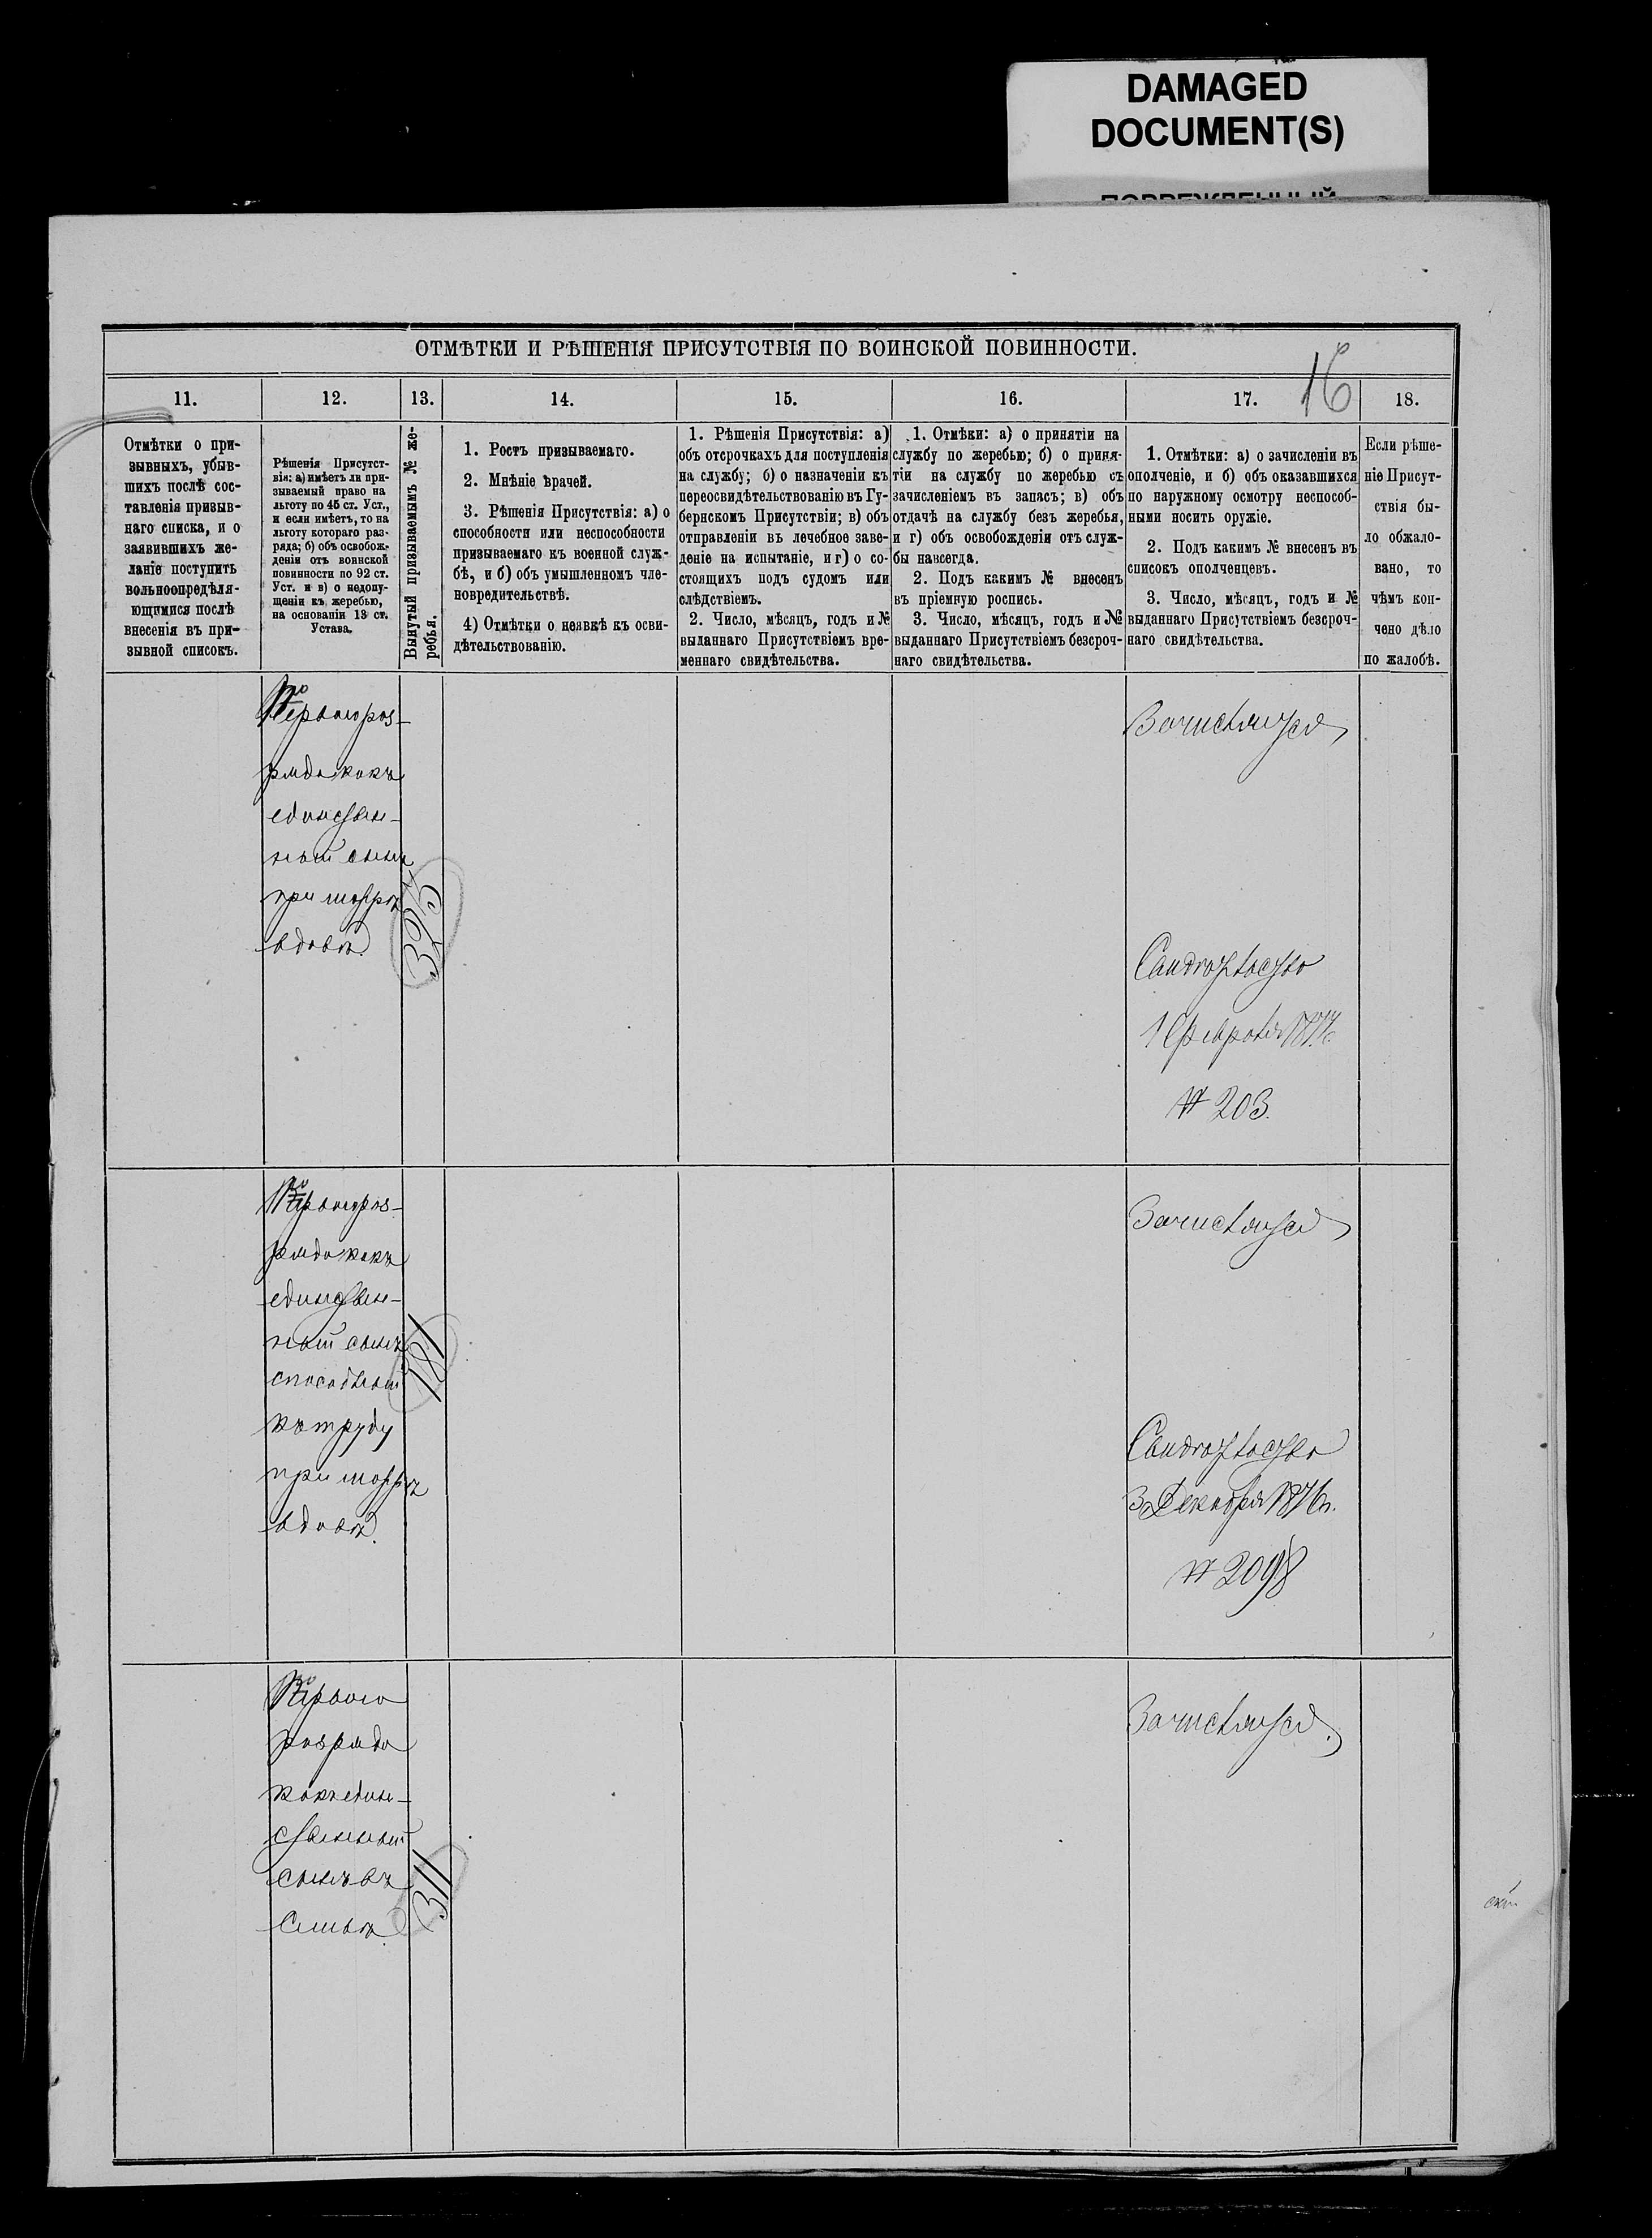 DAMAGED
DOCUMENT(S)
ПОВРЕЖДЕННЫЙ
ОТМѢТКИ И РѢШЕНІЯ ПРИСУТСТВІЯ ПО ВОИНСКОЙ ПОВИННОСТИ.
16
11.
12.
13.
14.
15.
16.
17.
18.
Отмѣтки о при-
зывныхъ, убыв-
шихъ послѣ сос-
тавленія призыв-
наго списка, и о
заявившихъ же-
ланіе поступить
вольноопредѣля-
ющимися послѣ
внесенія въ при-
зывной списокъ.
Рѣшенія Присутст-
вія: а) имѣетъ ли при-
зываемый право на
льготу по 45 ст. Уст.,
и если имѣетъ, то на
льготу котораго раз-
ряда; б) объ освобож-
деніи отъ воинской
повинности по 92 ст.
Уст. и в) о недопу-
щеніи къ жеребью,
на основаніи 13 ст.
Устава.
Вынутый призываемымъ № же-
ребья.
1. Ростъ призываемаго.
2. Мнѣніе врачей.
3. Рѣшенія Присутствія: а) о
способности или неспособности
призываемаго къ военной служ-
бѣ, и б) объ умышленномъ чле-
новредительствѣ.
4) Отмѣтки о неявкѣ къ осви-
дѣтельствованію.
1. Рѣшенія Присутствія: а)
объ отсрочкахъ для поступленія
на службу; б) о назначеніи къ
переосвидѣтельствованію въ Гу-
бернскомъ Присутствіи; в) объ
отправленіи въ лечебное заве-
деніе на испытаніе, и г) о со-
стоящихъ подъ судомъ или
слѣдствіемъ.
2. Число, мѣсяцъ, годъ и №
выданнаго Присутствіемъ вре-
меннаго свидѣтельства.
1. Отмѣки: а) о принятіи на
службу по жеребью; б) о приня-
тіи на службу по жеребью съ
зачисленіемъ въ запасъ; в) объ
отдачѣ на службу безъ жеребья,
и г) объ освобожденіи отъ служ-
бы навсегда.
2. Подъ какимъ № внесенъ
въ пріемную роспись.
3. Число, мѣсяцъ, годъ и №
выданнаго Присутствіемъ безсроч-
наго свидѣтельства.
1. Отмѣтки: а) о зачисленіи въ
ополченіе, и б) объ оказавшихся
по наружному осмотру неспособ-
ными носить оружіе.
2. Подъ какимъ № внесенъ въ
списокъ ополченцевъ.
3. Число, мѣсяцъ, годъ и №
выданнаго Присутствіемъ безсроч-
наго свидѣтельства.
Если рѣше-
ніе Присут-
ствія бы-
ло обжало-
вано, то
чѣмъ кон-
чено дѣло
по жалобѣ.
Перваго раз-
ряда какъ
единствен-
ный сынъ
при матерѣ
вдовѣ.
325
Зачисляется
Свидѣтельство
1 Февраля 1877 г.
№ 203.
Перваго раз-
ряда какъ
единствен-
ный сынъ
способный
къ труду
при матерѣ
вдовѣ.
181
Зачисляется
Свидѣтельство
30 Декабря 1876 г.
№ 2098
Перваго
разряда
какъ един-
ственный
сынъ въ
семьѣ.
311
Зачисляется.